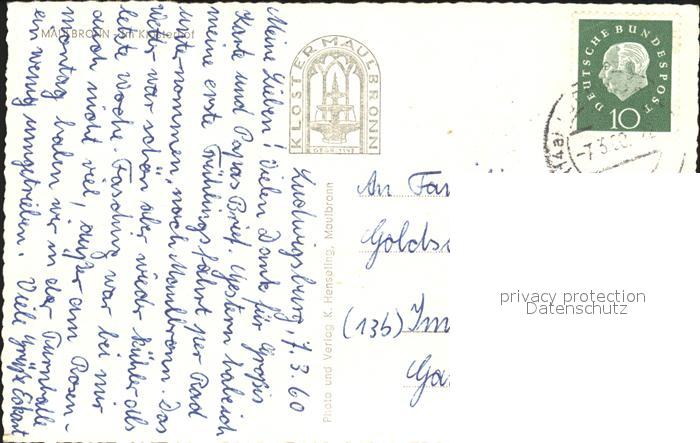 MAULBRONN - Im Klosterhof
Ludwigsburg, 7.3.60
Meine Lieben! Vielen Dank für Großis
Karte und Papas Brief. Gestern habe ich
meine erste Frühlingsfahrt per Rad
unternommen, nach Maulbronn. Das
Wetter war schön aber wieder kühler als
letzte Woche. Fasching war bei mir
auch nicht viel, außer am Rosen-
montag haben wir in der Turnhalle
ein wenig umgetrieben. Viele Grüße Eckart
KLOSTER MAULBRONN
GEGR. 1147
Photo und Verlag K. Henseling, Maulbronn
DEUTSCHE BUNDESPOST
10
-7.3.60
An Fam
Golds
(13b) Im
Ga
privacy protection
Datenschutz